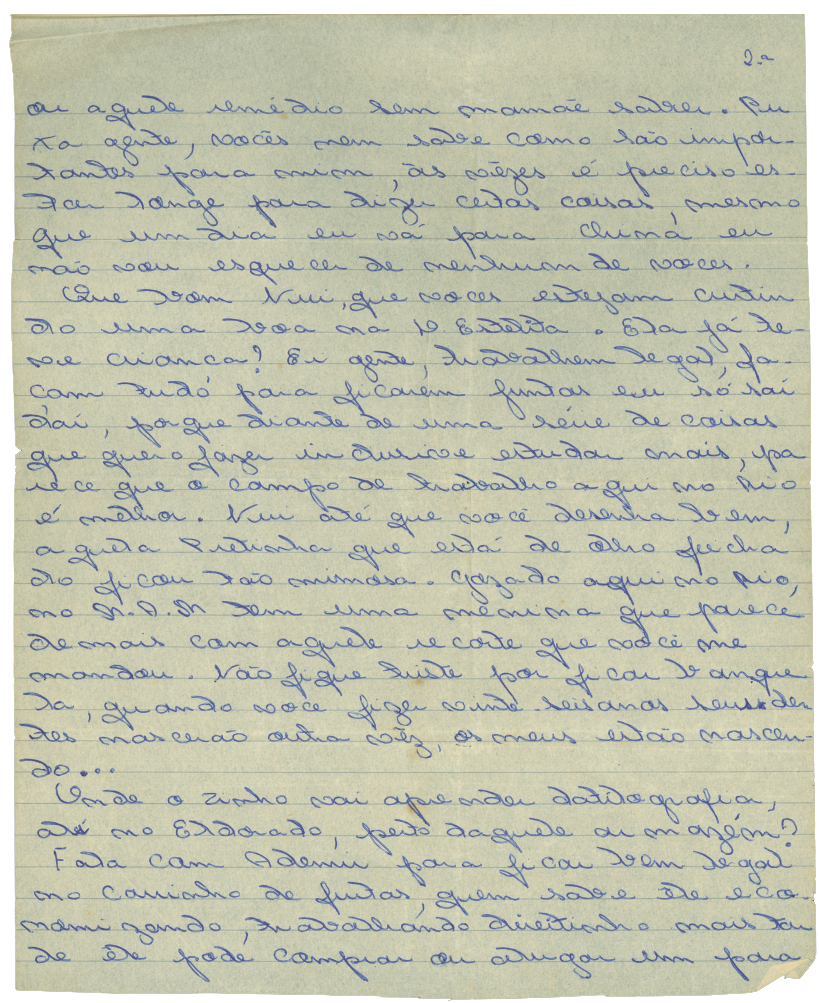 2.a
ou aquele remédio sem mamãe saber. Pu
xa gente, vocês nem sabe como são impor-
tantes para mim, às vêzes é preciso es-
tar longe para dizer certas coisas, mesmo
que um dia eu vá para China eu
não vou esquecer de nenhum de voces.
Que bom Nui, que voces estejam curtin
do uma boa na D Estelita. Ela já te-
ve criança? Ei gente, trabalhem legal, fa-
çam tudo para ficarem juntas eu só sai
daí, porque diante de uma série de coisas
que quero fazer inclusive estudar mais, pa
rece que o campo de trabalho aqui no Rio
é melhor. Nui até que você desenha bem,
aquela Pretinha que está de olho fecha
do ficou tão mimosa. Gozado aqui no Rio,
no M.A.M tem uma menina que parece
demais com aquele recorte que você me
mandou. Não fique triste por ficar bangue
la, quando voce fizer vinte seis anos seus den
tes nascerão outra vêz, os meus estão nascen-
do...
Onde o Zinho vai aprender datilografia,
até no Eldorado, perto daquele armazém?
Fala com Ademir para ficar bem legal
no carrinho de frutas, quem sabe êle eco-
nomizando, trabalhando direitinho mais tar
de êle pode comprar ou alugar um para